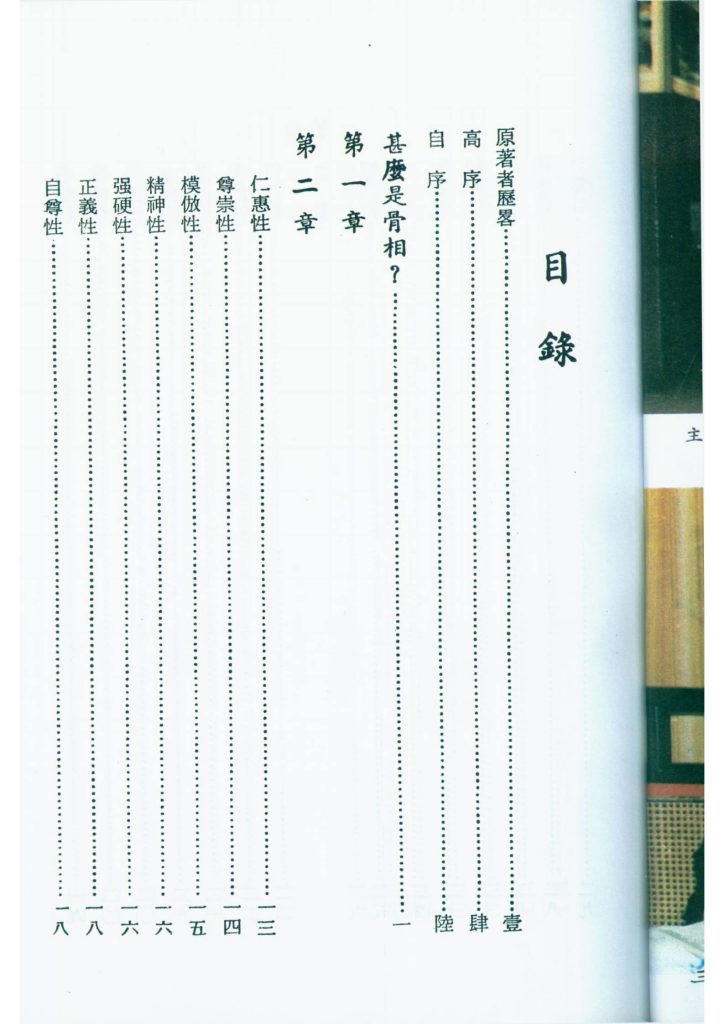 目錄
原著者歷畧……壹
高序……肆
自序……陸
甚麼是骨相？……一
第一章
第二章
仁惠性……一三
尊崇性……一四
模倣性……一五
精神性……一六
强硬性……一六
正義性……一八
自尊性……一八
主
三